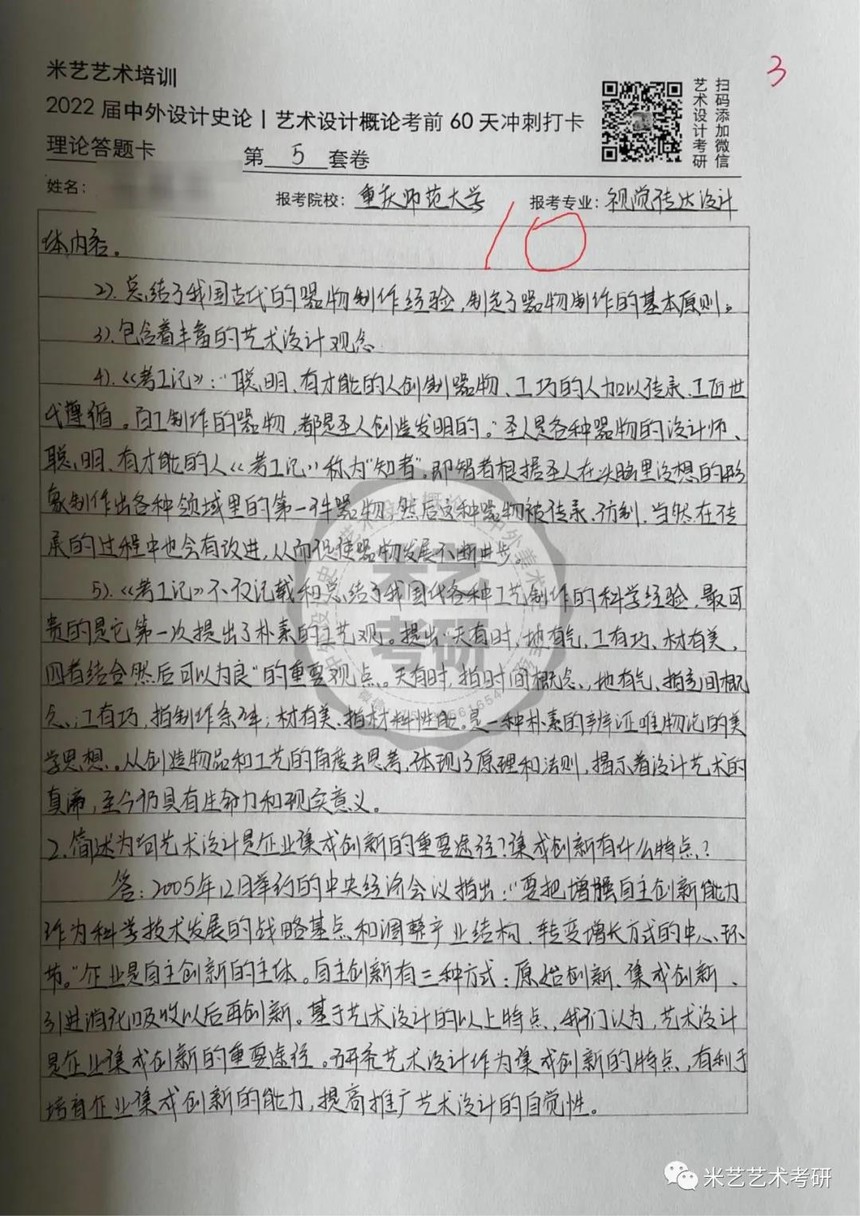 米艺艺术培训
3
2022 届中外设计史论 | 艺术设计概论考前 60 天冲刺打卡
理论答题卡
第 5 套卷
扫码添加微信
艺术设计考研
姓名:
报考院校: 重庆师范大学
报考专业: 视觉传达设计
10
体内容。
2). 总结了我国古代的器物制作经验, 制定了器物制作的基本原则。
3). 包含着丰富的艺术设计观念
4).《考工记》:"聪明、有才能的人创制器物、工巧的人加以传承、工匠世
代遵循。百工制作的器物, 都是圣人创造发明的。"圣人是各种器物的设计师、
聪、明、有才能的人《考工记》称为"知者", 即智者根据圣人在头脑里设想的形
象制作出各种领域里的第一件器物, 然后这种器物被传承、仿制, 当然在传
承的过程中也会有改进, 从而促使器物发展不断进步。
5).《考工记》不仅记载和总结了我国代各种工艺制作的科学经验, 最可
贵的是它第一次提出了朴素的工艺观。提出"天有时, 地有气, 工有巧、材有美,
四者结合然后可以为良"的重要观点。天有时, 指时间概念、地有气、指空间概
念、; 工有巧, 指制作条件; 材有美、指材料性能。是一种朴素的辨证唯物论的美
学思想、。从创造物品和工艺的角度去思考, 体现了原理和法则, 揭示着设计艺术的
真谛, 至今仍具有生命力和现实意义。
2. 简述为何艺术设计是企业集成创新的重要途径? 集成创新有什么特点?
答: 2005年12月举行的中央经济会议指出:"要把增强自主创新能力
作为科学技术发展的战略基点和调整产业结构、转变增长方式的中心环
节。"企业是自主创新的主体。自主创新有三种方式: 原始创新、集成创新、
引进消化吸收以后再创新。基于艺术设计的以上特点、我们认为, 艺术设计
是企业集成创新的重要途径。研究艺术设计作为集成创新的特点, 有利于
培育企业集成创新的能力, 提高推广艺术设计的自觉性。
米艺
考研
米艺艺术考研